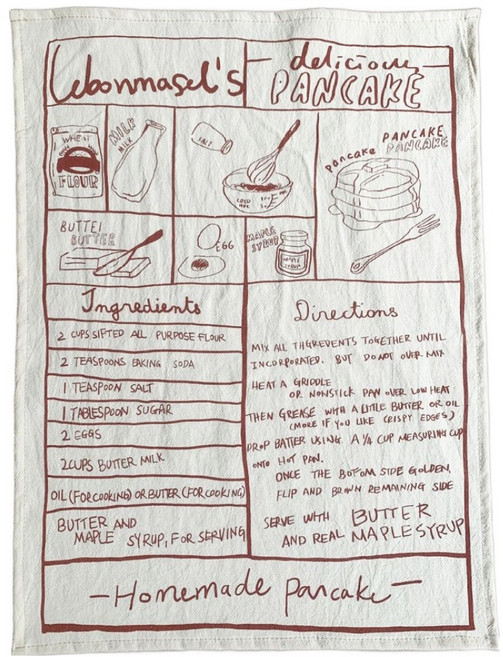 Lebonmasel's
delicious
PANCAKE
WHEAT
FLOUR
MILK
MILK
SALT
PANCAKE
PANCAKE
pancake
BUTTER
BUTTER
EGG
MAPLE
SYRUP
Ingredients
2 CUPS SIFTED ALL PURPOSE FLOUR
2 TEASPOONS BAKING SODA
1 TEASPOON SALT
1 TABLESPOON SUGAR
2 EGGS
2 CUPS BUTTER MILK
OIL (FOR COOKING) OR BUTTER (FOR COOKING)
BUTTER AND
MAPLE SYRUP, FOR SERVING
Directions
MIX ALL THGREDENTS TOGETHER UNTIL
INCORPORATED. BUT DO NOT OVER MIX
HEAT A GRIDDLE
OR NONSTICK PAN OVER LOW HEAT
THEN GREASE WITH A LITTLE BUTTER OR OIL
(MORE IF YOU LIKE CRISPY EDGES)
DROP BATTER USING A 1/4 CUP MEASURING CUP
ONTO HOT PAN.
ONCE THE BOTTOM SIDE GOLDEN,
FLIP AND BROWN REMAINING SIDE
SERVE WITH BUTTER
AND REAL MAPLE SYRUP
-Homemade pancake-